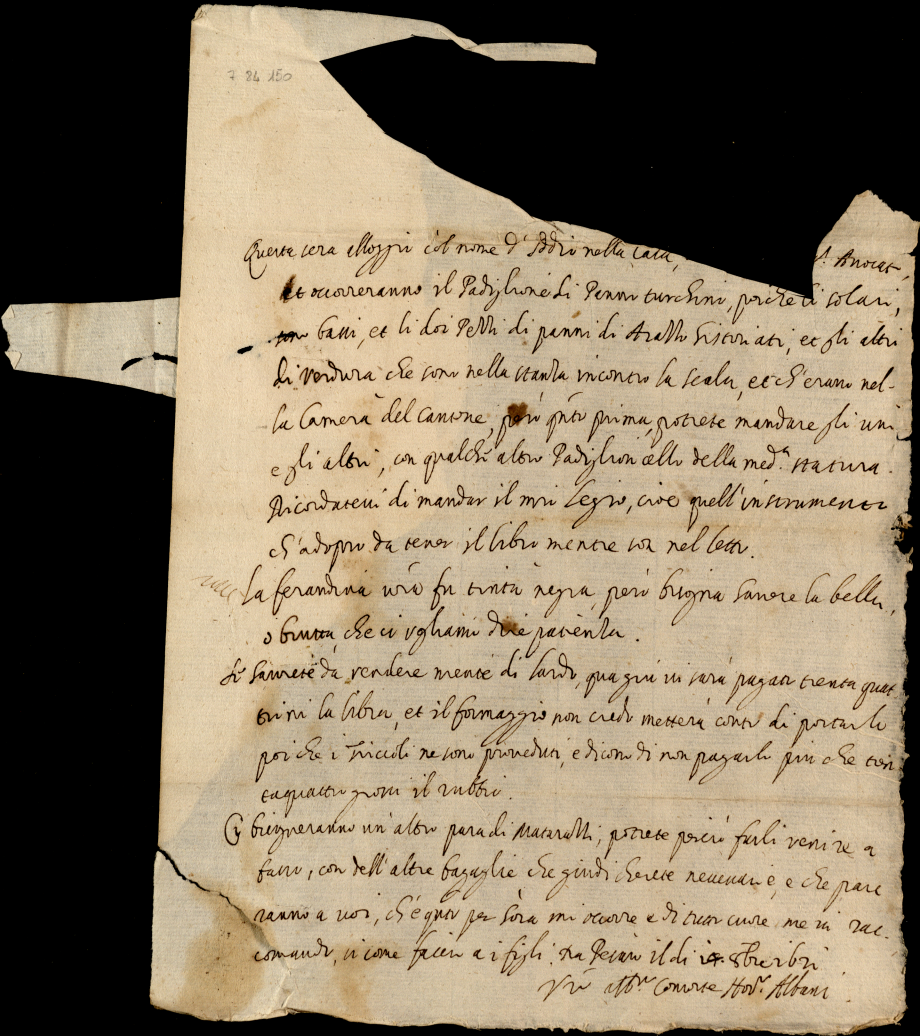 7 84 150
Questa sera alloggio col nome d'Iddio nella casa, S.r Avocat,
et occorreranno il Padiglione di Panno turchino, perche li solari,
sono bassi, et li doi Pezzi di panni di Arazzo historiati, et gli altri
di verdura che sono nella stanza incontro la scala, et ch'erano nel-
la Camera del Cantone, però qnto prima, potrete mandare gli uni
e gli altri, con qualche altro Padiglioncello della med.a statura.
Ricordatevi di mandar il mio legio, cioè quell'instrumento
ch'adopro da tener il libro mentre son nel letto.
La ferandina vra fu tinta negra, però bisogna havere la bella,
o brutta che ci vogliamo dire patienza.
Se havrete da vendere mente di lardo, qua giù vi sarà pagato trenta quat
trini la libra, et il formaggio non credo metterà conto di portarlo
poiche i ne sono proveduti, e dicono di non pagarlo più che tren
taquattro grossi il rubbio.
Ci bisogneranno un'altro para di Matarazzi, potrete perciò farli venire a
basso, con dell'altre bagaglie che giudicherete necessarie, e che pare
ranno a voi, ch'è qnto per hora mi occorre e di tutto cuore me vi rac-
comando, si come faccio a i figli. Da Pesaro il di 14 8bre
Vro aff.mo Consorte Hor.o Albani